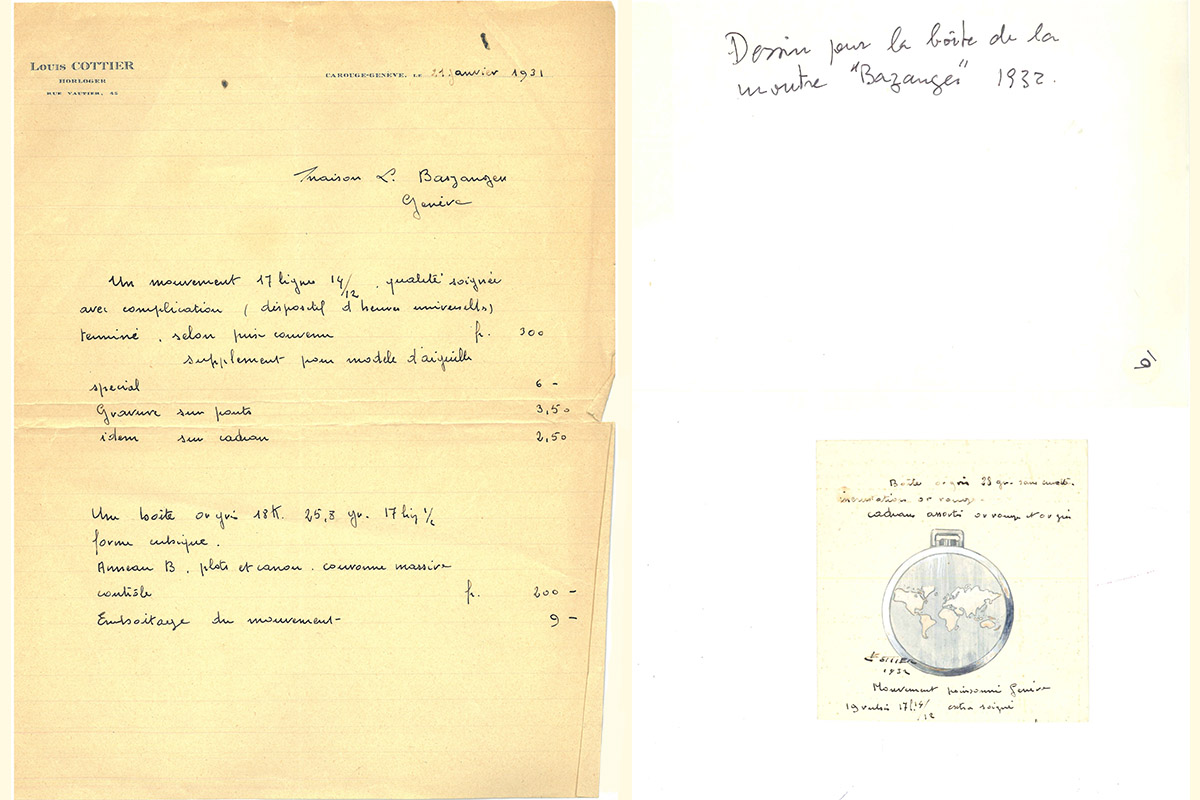 Louis COTTIER
HORLOGER
RUE VAUTIER, 45
CAROUGE-GENÈVE, LE 21 janvier 1931
Maison L. Baszanger
Genève
Un mouvement 17 lignes 14/12, qualité soignée
avec complication (dispositif d'heures universelles)
terminé, selon prix convenu fr. 300
supplement pour modèle d'aiguille
special 6 -
Gravure sur ponts 3,50
idem sur cadran 2,50
Une boîte or gris 18K. 25,8 gr. 17 lig 1/2
forme cubique.
Anneau B, plots et canon. couronne massive
contrôle fr. 200 -
Emboitage du mouvement 9 -
Dessin pour la boîte de la
montre "Bazanger" 1932.
19
Boîte or gris 28 gr. sans cuvette.
incrustation or rouge.
cadran assorti or rouge et or gris
L. COTTIER
1932
Mouvement poinçonné Genève
19 rubis 17''' 14/12 extra soigné